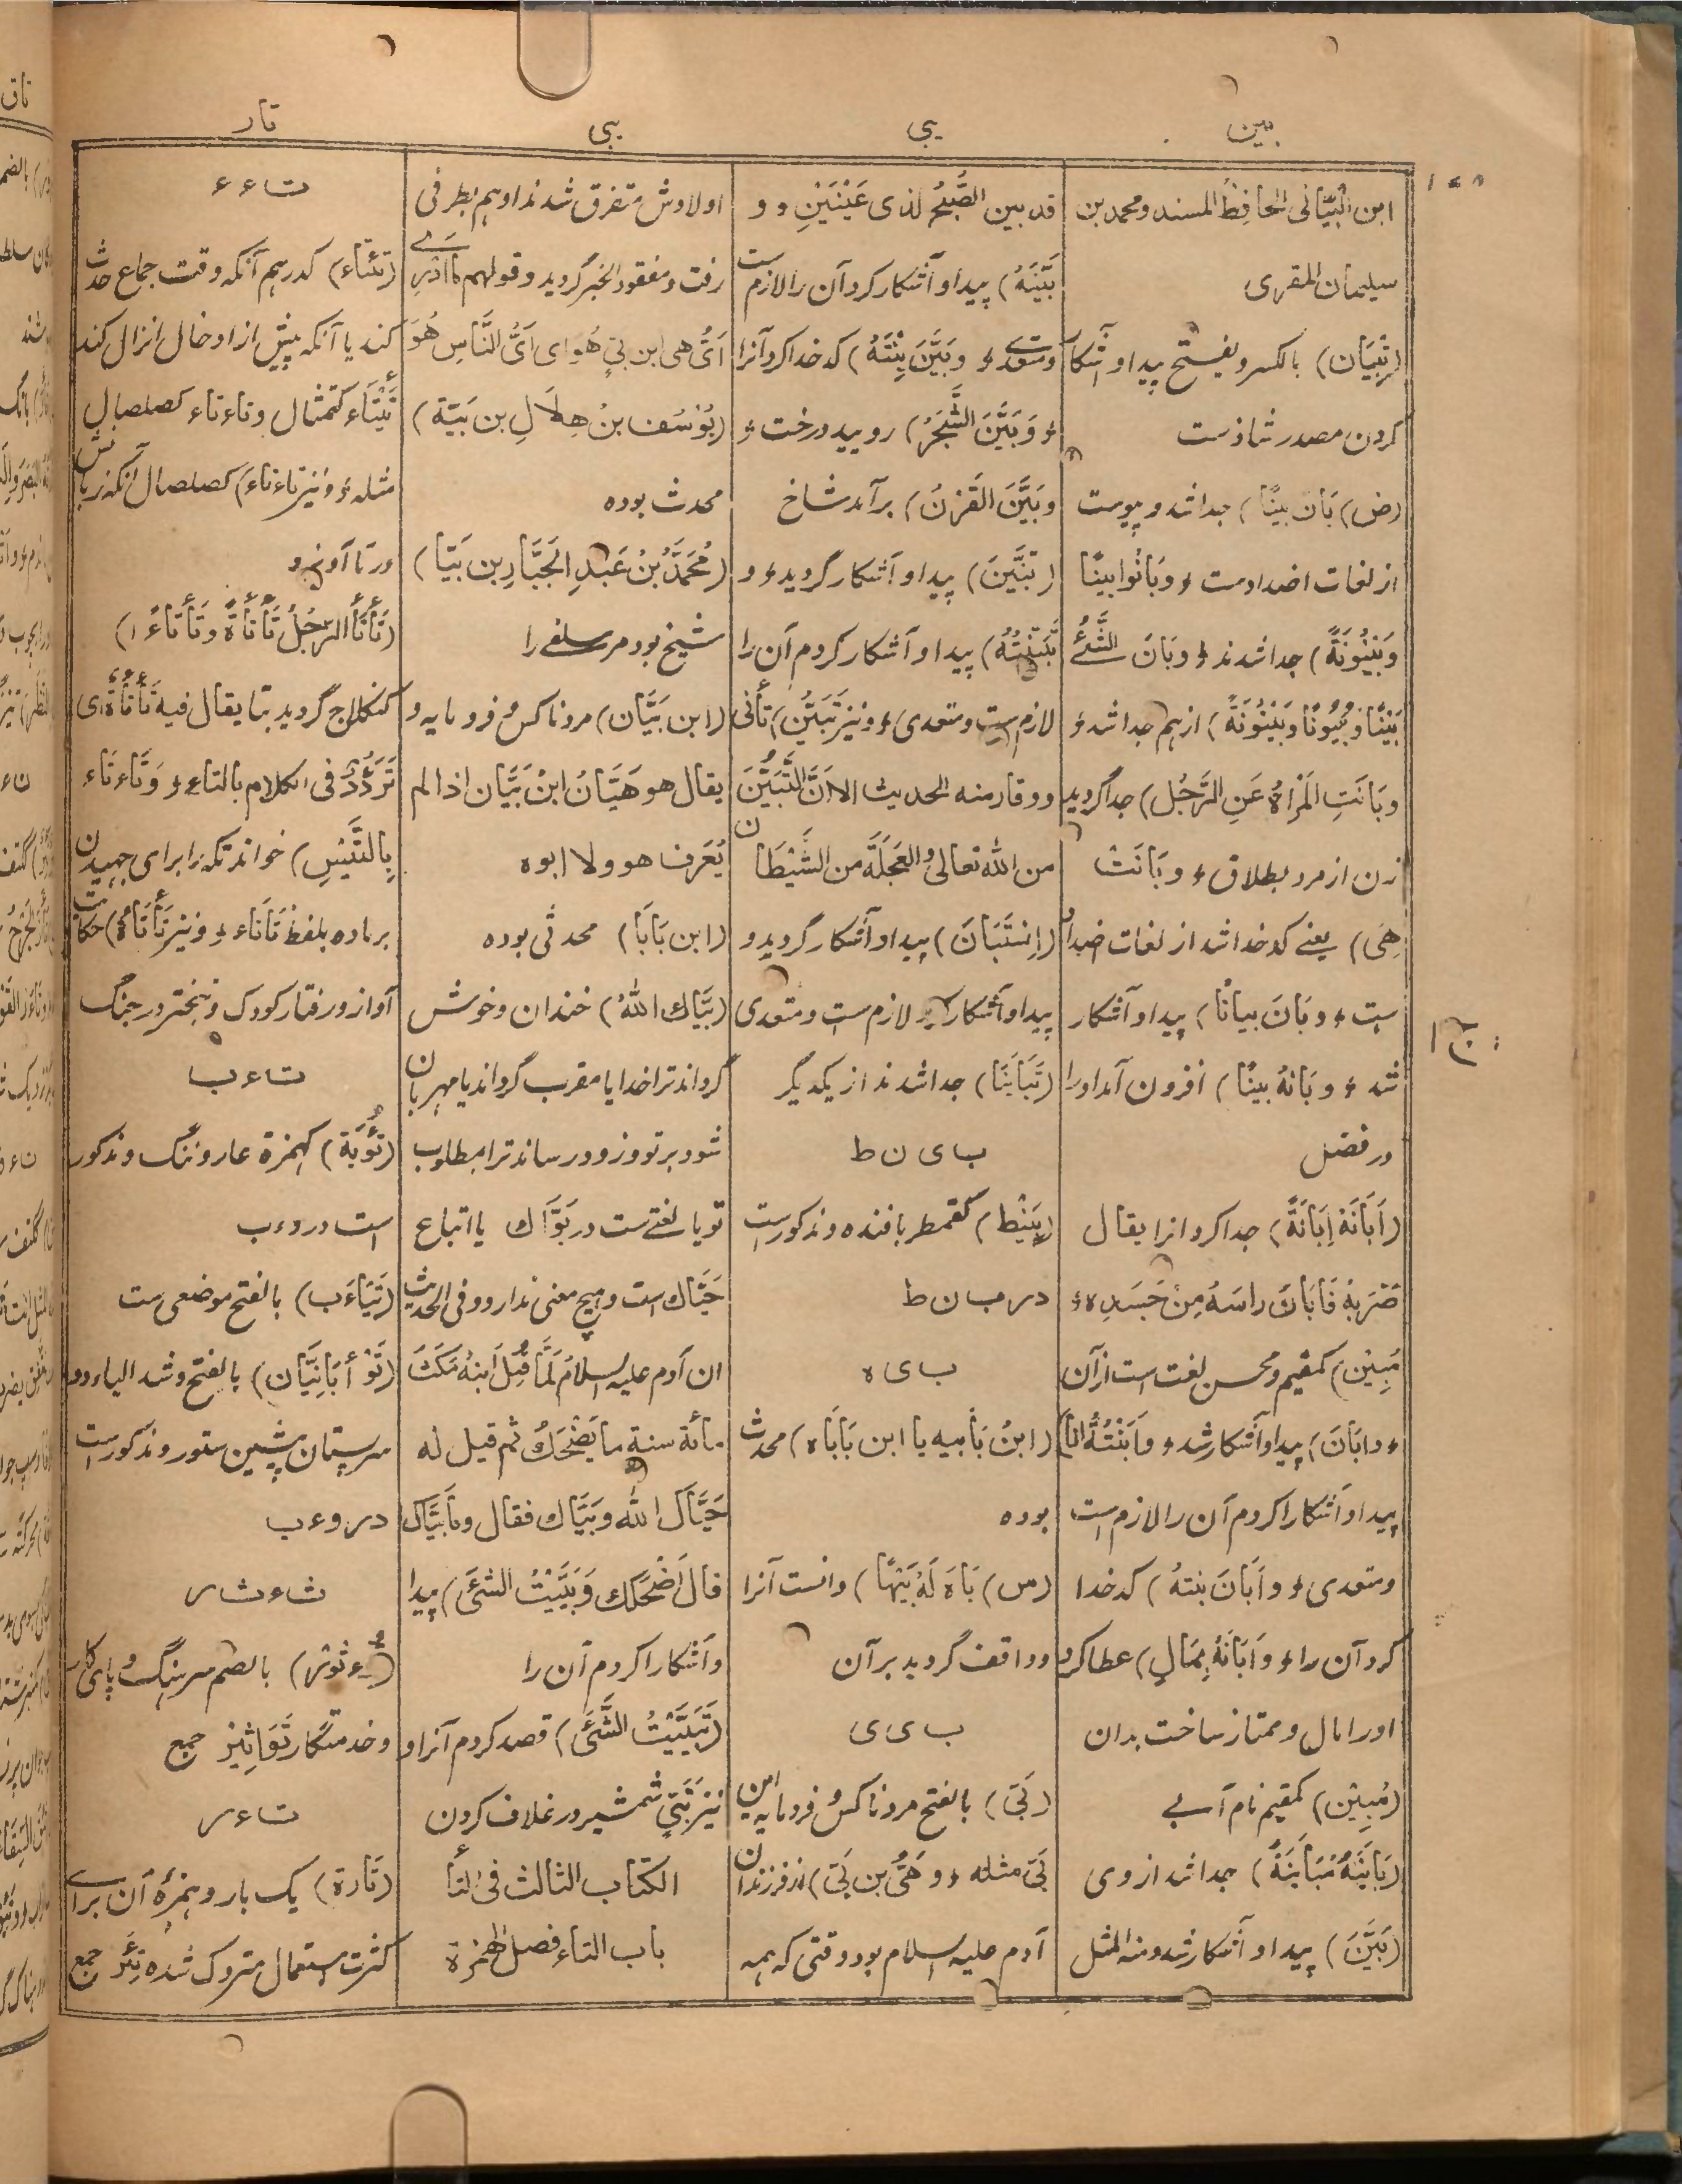 بین
یبی
یبی
تار
۱۵۸
ابن البَیَّانی الحَافِظُ المسند و محمد بن
سلیمان المقری
(تِبْیَان) بالکسر و یفتح پیدا و آشکار
کردن مصدر شاذ ست
(ض) بَانَ بَینًا) جدا شد و پیوست
از لغات اضداد ست ء و بَانُوا بینًا
وَبَیْنُونَةً) جدا شدند ء و بَانَ الشَّیْئُ
بَیْنًا وَبُیُونًا وَبَیْنُونَةً) از ہم جدا شد ء
وبَانَتِ المَرْاةُ عَنِ الرَّجُلِ) جدا گردید
زن از مرد بطلاق ء و بَانَتْ
هِیَ) یعنے کدخدا شد از لغات اضداد
ست ء و بَانَ بیانًا) پیدا و آشکار
شد ء و بَانَهُ بینًا) افزون آمد او را
در فضل
(اَبَانَهُ اِبَانَةً) جدا کرد انرا یقال
ضَرَبَهُ فَاَبَانَ راسَهُ مِنْ جَسَدِهٖ ء
مُبِیْن) کمقیم و محسن لغت است ازآن
ء و ابَانَ) پیدا و آشکار شد ء وَاَبَنْتُهُ انا)
پیدا و آشکارا کردم آن را لازم است
و متعدی ء و اَبَانَ بنتهُ) کدخدا
کرد آن را ء و اَبَانَهُ بِمَالٍ) عطا کرد
او را مال و ممتاز ساخت بدان
(مُبِیْن) کمقیم نام آبے
(بَایَنَهُ مُبَایَنَةً) جدا شد از وی
(بَیَّنَ) پیدا و آشکار شد و منه المثل
قد بین الصُّبْحُ لذی عَیْنَیْنِ و و
بَیَّنَهُ) پیدا و آشکار کرد آن را لازم ست
و متعدے ء و بَیَّنَ بِنْتَهُ) کدخدا کرد آنرا
ء وَ بَیَّنَ الشَّجَرُ) رویید درخت ء
و بَیَّنَ القَرْنُ) برآمد شاخ
(تَبَیَّنَ) پیدا و آشکار گردید ء و
تَبَیَّنْتُهُ) پیدا و آشکار کردم آن را
لازم ست و متعدی ء و نیز تَبَیُّن) تأنی
و وقار منه الحدیث الا انَّ التَّبَیُّنَ
من الله تعالی و العَجَلَةَ من الشَّیْطَان
(اِسْتَبَانَ) پیدا و آشکار گردید و
پیدا و آشکار کرد لازم ست و متعدی
(تَبَایَنَا) جدا شدند از یکدیگر
ب ی ن ط
(بَیْنَط) کقمطر بافنده و مذکورست
در ب ن ط
ب ی ه
(ابنُ بَابیه یا ابن بَابَاه) محدث
بوده
(س) بَاهَ لَهُ بَیْهًا) دانست آنرا
و واقف گردید برآن
ب ی ی
(بَیّ) بالفتح مرد ناکس و فرومایه ابن
بَیّ مثله ء و هَیُّ بن بَیّ) از فرزندان
آدم علیه السلام بود وقتی که ہمه
اولادش متفرق شدند او ہم بطرفی
رفت و مفقود الخبر گردید و قولهم مَا اَدْرِے
اَیُّ هی ابن بَیٍّ هُو ای اَیُّ النَّاسِ هُوَ
(یُوسُف بنُ هِلَالِ بن بَیَّة)
محدث بوده
(مُحَمَّدُ بْنُ عَبدِ الجَبَّارِ بن بَیَّا)
شیخ بود مر سلفے را
(ابن بَیَّان) مرد ناکس و فرومایه و
یقال هو هَیَّانُ ابْنُ بَیَّان اذا لم
یُعْرَف هو ولا ابوه
(ابن بَابَا) محدثی بوده
(بَیَّاك اللهُ) خندان و خوش
گرداند ترا خدا یا مقرب گرداند یا مہربان
شود بر تو و زود رساند ترا بمطلوب
تو یا لغتے ست در بَوَّاك یا اتباع
حَیَّاك است و ہیچ معنی ندارد و فی الحدیث
ان آدم علیه السلامُ لَمَّا قُتِلَ ابنُهُ مَکَثَ
مائة سنة ما یَضْحَكُ ثم قیل له
حَیَّاكَ الله وبَیَّاك فقال وما بَیَّاك
قالَ اَضْحَكَك وَبَیَّیْتُ الشئَ) پیدا
و آشکارا کردم آن را
(تَبَیَّیْتُ الشَّئَ) قصد کردم آنرا و
نیز تَبَیّی شمشیر در غلاف کردن
الکتاب الثالث فی التا
باب التاء فصل الهمزة
ت ا ء ء
(تَئتَاء) کدرہم آنکه وقت جماع حدث
کند یا آنکه پیش از ادخال انزال کند
تَئْتَاء کتمثال و تاءتاء کصلصال
مثله ء و نیز تاءتاءَ) کصلصال آنکه زبانش
در تا آویزد
(تَأتَأ الرَّجُلُ تَأتَأةً وَتَأتَاءً ا)
کنکلاج گردید بتا یقال فیهِ تَأتَأة ای
تَرَدُّدٌ فی الکلام بالتاء ء وَتَاءتَاء
بِالتَّیْسِ) خواند تکه را برای جہیدن
بر ماده بلفظ تَاتَاء ء و نیز تَأتَأة) حکایت
آواز و رفتار کودک و تبختر در جنگ
ت ا ء ب
(تُؤَبَة) کہمزة عار و ننگ و مذکور
است در و ء ب
(تَیَاءَب) بالفتح موضعی ست
(تَوْأبَانِیَّان) بالفتح و شد الیاء دو
سر پستان پیشین ستور و مذکورست
در و ء ب
ت ا ء ث ر
(تُؤثور) بالضم سرہنگ و پای کار
و خدمتگار تَوَاثِیْر جمع
ت ا ء ر
(تَارَة) یک بار و ہمزهٔ آن برای
کثرت استعمال متروک شده تِئَر جمع